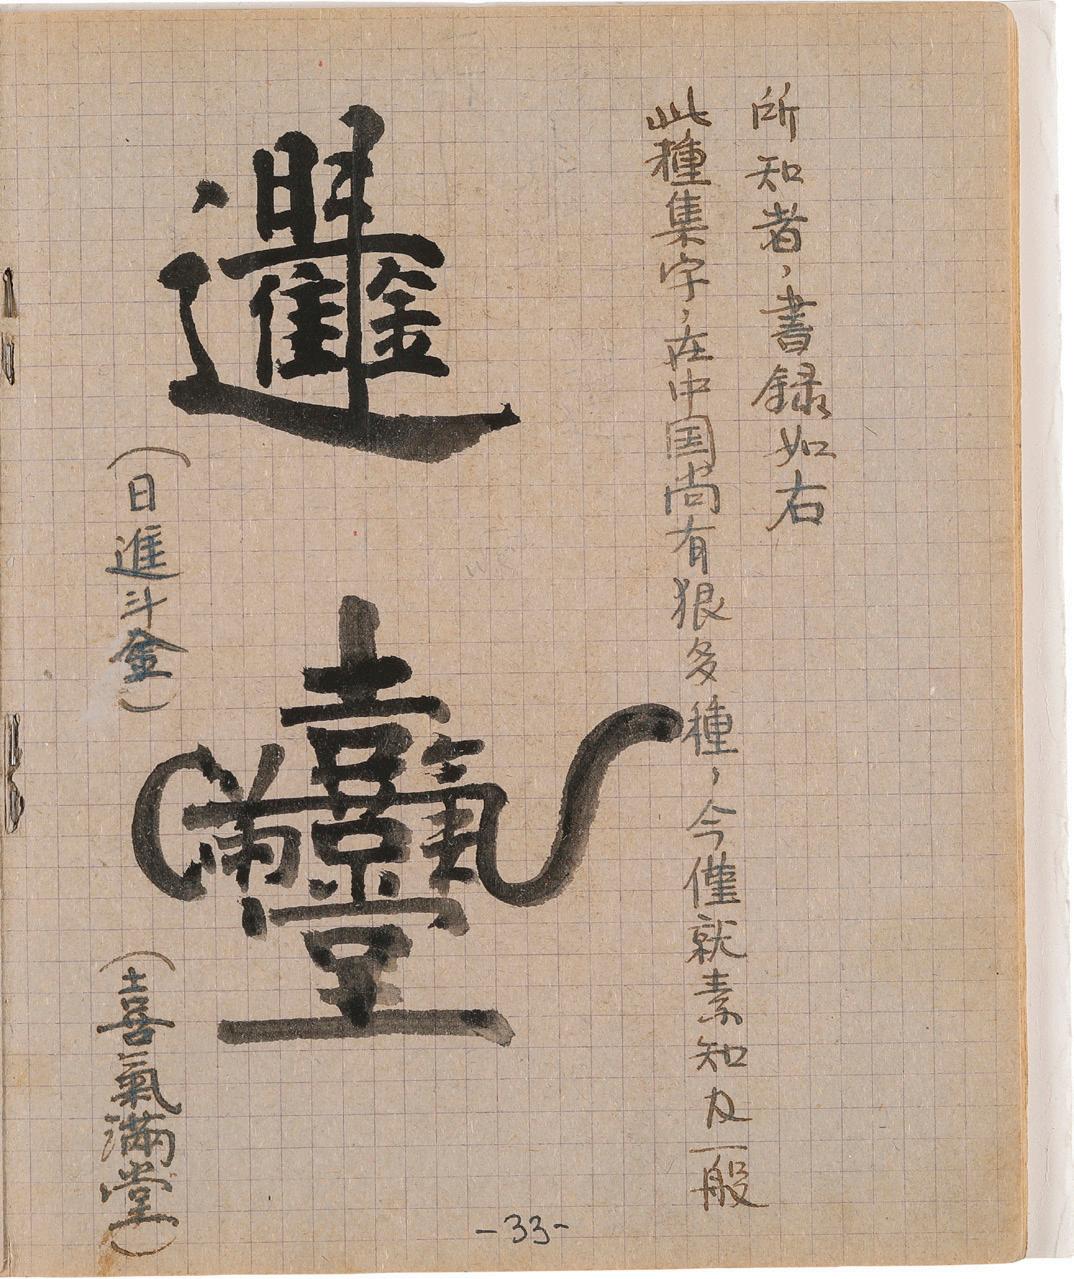 （日進斗金）
（喜氣滿堂）
此種集字，在中国尚有狠多種，今僅就素知及一般
所知者，書録如右
-33-